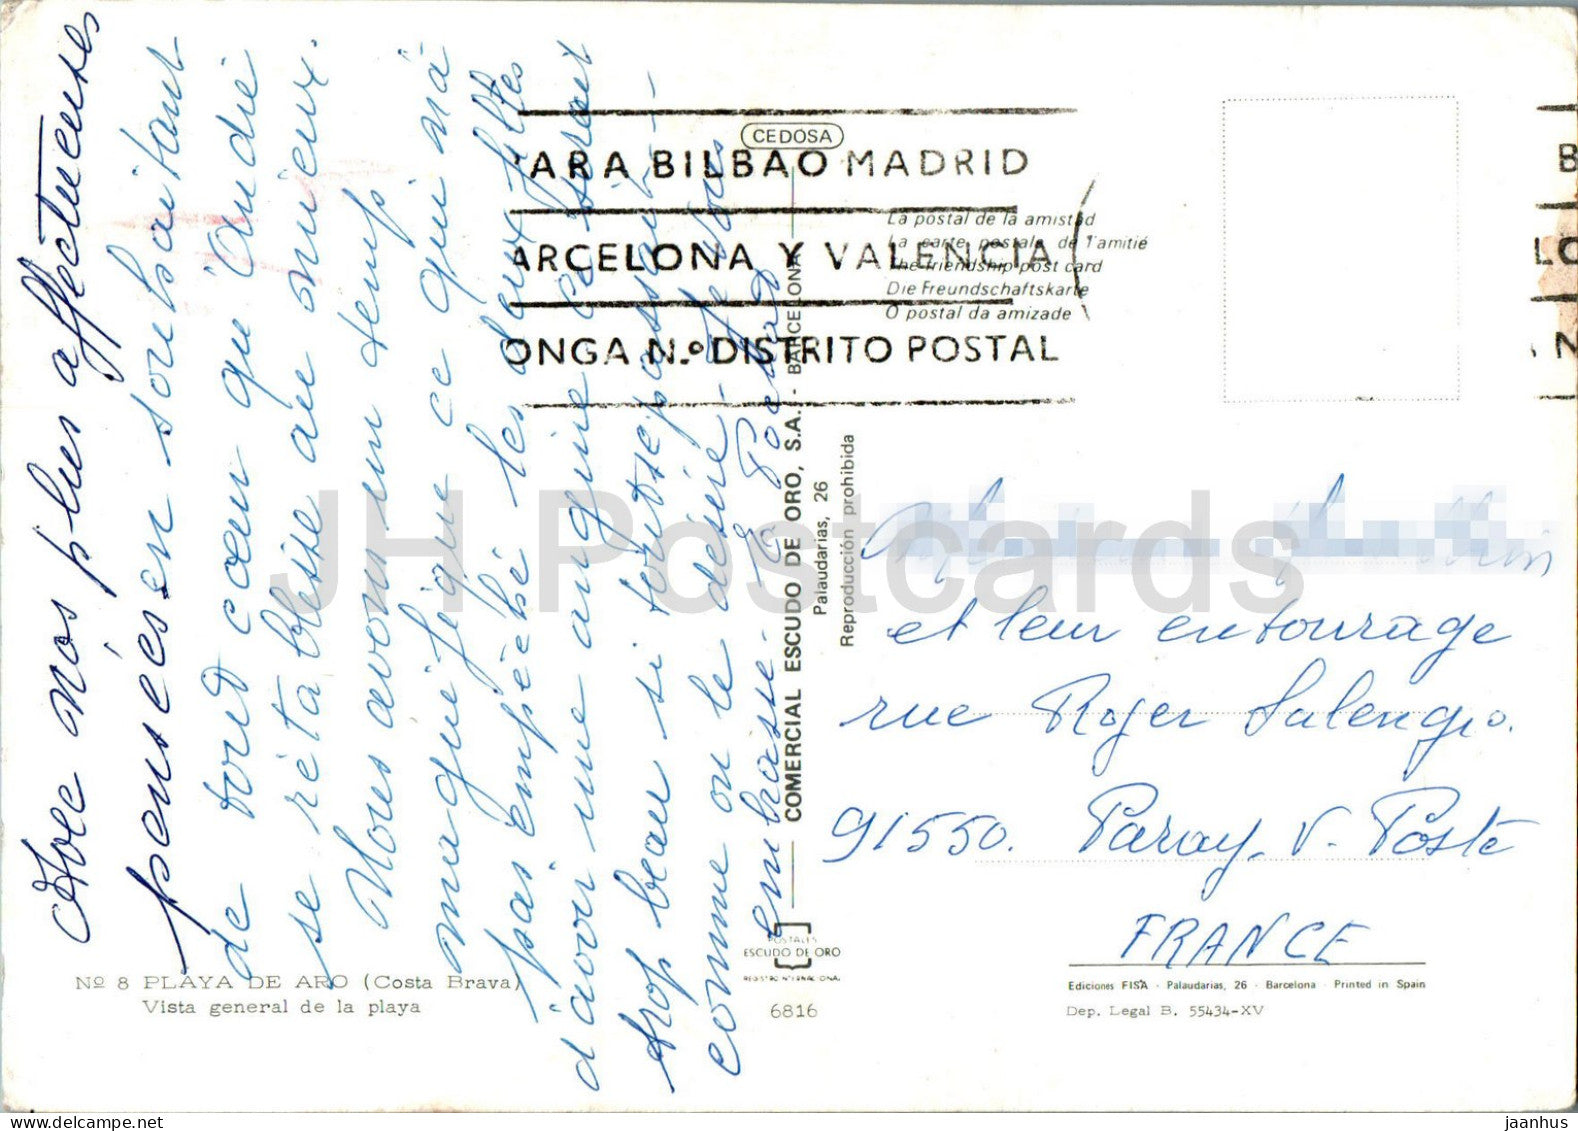 Avec nos plus affectueuses
pensées en souhaitant
de tout cœur qu'Andrée
se rétablisse au mieux.
Nous avons un temps
magnifique ce qui n'a
pas empêché les deux filles
d'avoir une angine ce serait
trop beau si tout se passait
comme on le désire - Je vous
embrasse -
CEDOSA
ARA BILBAO MADRID
ARCELONA Y VALENCIA
ONGA N.º DISTRITO POSTAL
B
LO
N
La postal de la amistad
La carte postale de l'amitié
The friendship post card
Die Freundschaftskarte
O postal da amizade
COMERCIAL ESCUDO DE ORO, S.A. - BARCELONA
Palaudarias, 26
Reproducción prohibida
et leur entourage
rue Roger Salengro.
91550. Paray-V-Poste
FRANCE
Nº 8 PLAYA DE ARO (Costa Brava)
Vista general de la playa
POSTALES
ESCUDO DE ORO
REGISTRO INTERNACIONAL
6816
Ediciones FISA - Palaudarias, 26 - Barcelona - Printed in Spain
Dep. Legal B. 55434-XV
JH Postcards
www.delcampe.net
jaanhus